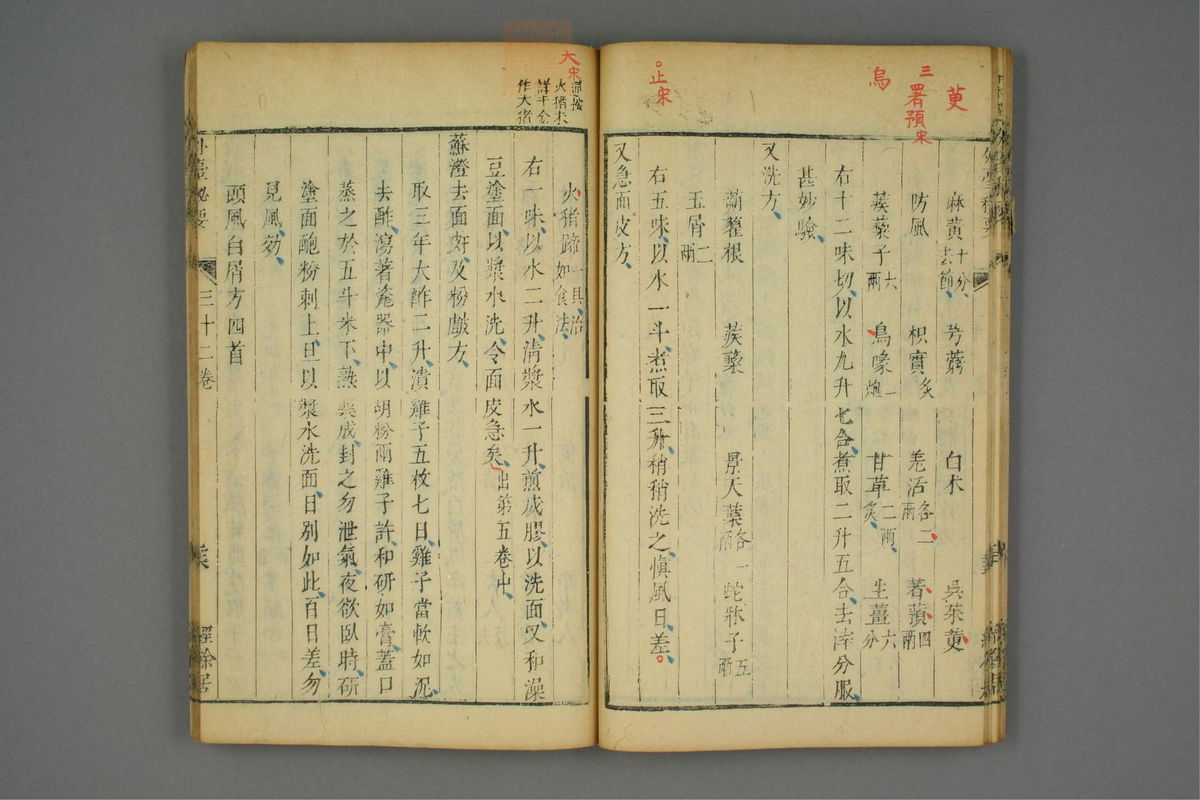 萸
三
署預宋
烏
正宋
麻黃十分去節 芎藭 白术 吳茱萸
防風 枳實炙 羗活各二兩 署蕷四兩
蒺藜子六兩 烏喙一炮 甘草二兩炙 生薑六分
右十二味切以水九升七合煮取二升五合去滓分服
甚妙驗
又洗方
蒴藋根 蒺藜 景天葉各一兩 蛇牀子五兩
玉屑二兩
右五味以水一斗煮取三升稍稍洗之愼風日差
又急面皮方
大宋
火猪未
詳千金
作大猪
火猪蹄一具治如食法
右一味以水二升淸漿水一升煎成膠以洗面又和澡
豆塗面以漿水洗令面皮急矣出第五卷中
蘇澄去面皯及粉䵟方
取三年大酢二升漬雞子五枚七日雞子當軟如泥
去酢瀉著瓷器中以胡粉兩雞子許和研如膏蓋口
蒸之於五斗米下熟藥成封之勿泄氣夜欲臥時研
塗面皰粉刺上旦以漿水洗面日別如此百日差勿
見風効
頭風白屑方四首
外臺秘要
三十二卷
經餘居